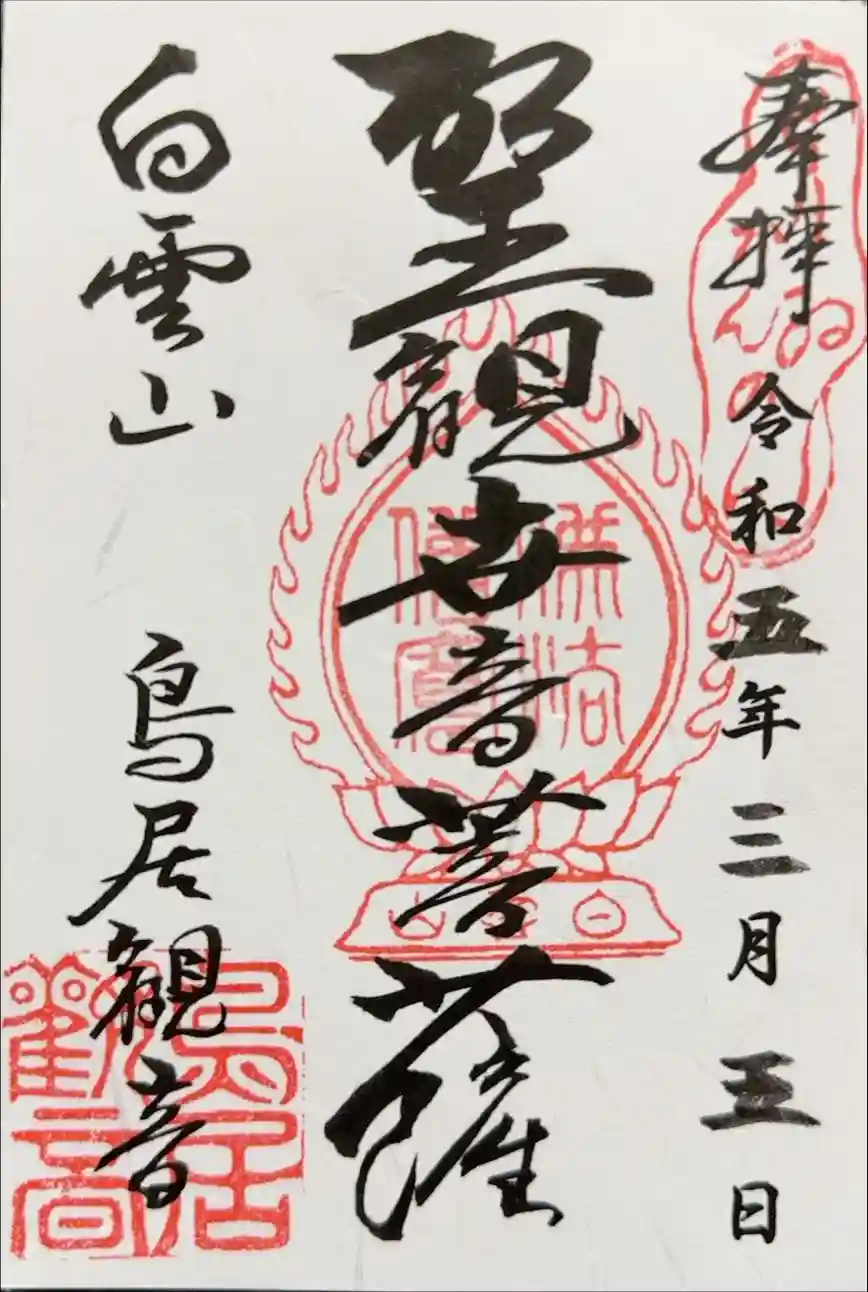 奉拝 令和五年三月五日
聖観世音菩薩
白雲山 鳥居観音
佛法僧寳
鳥居觀音